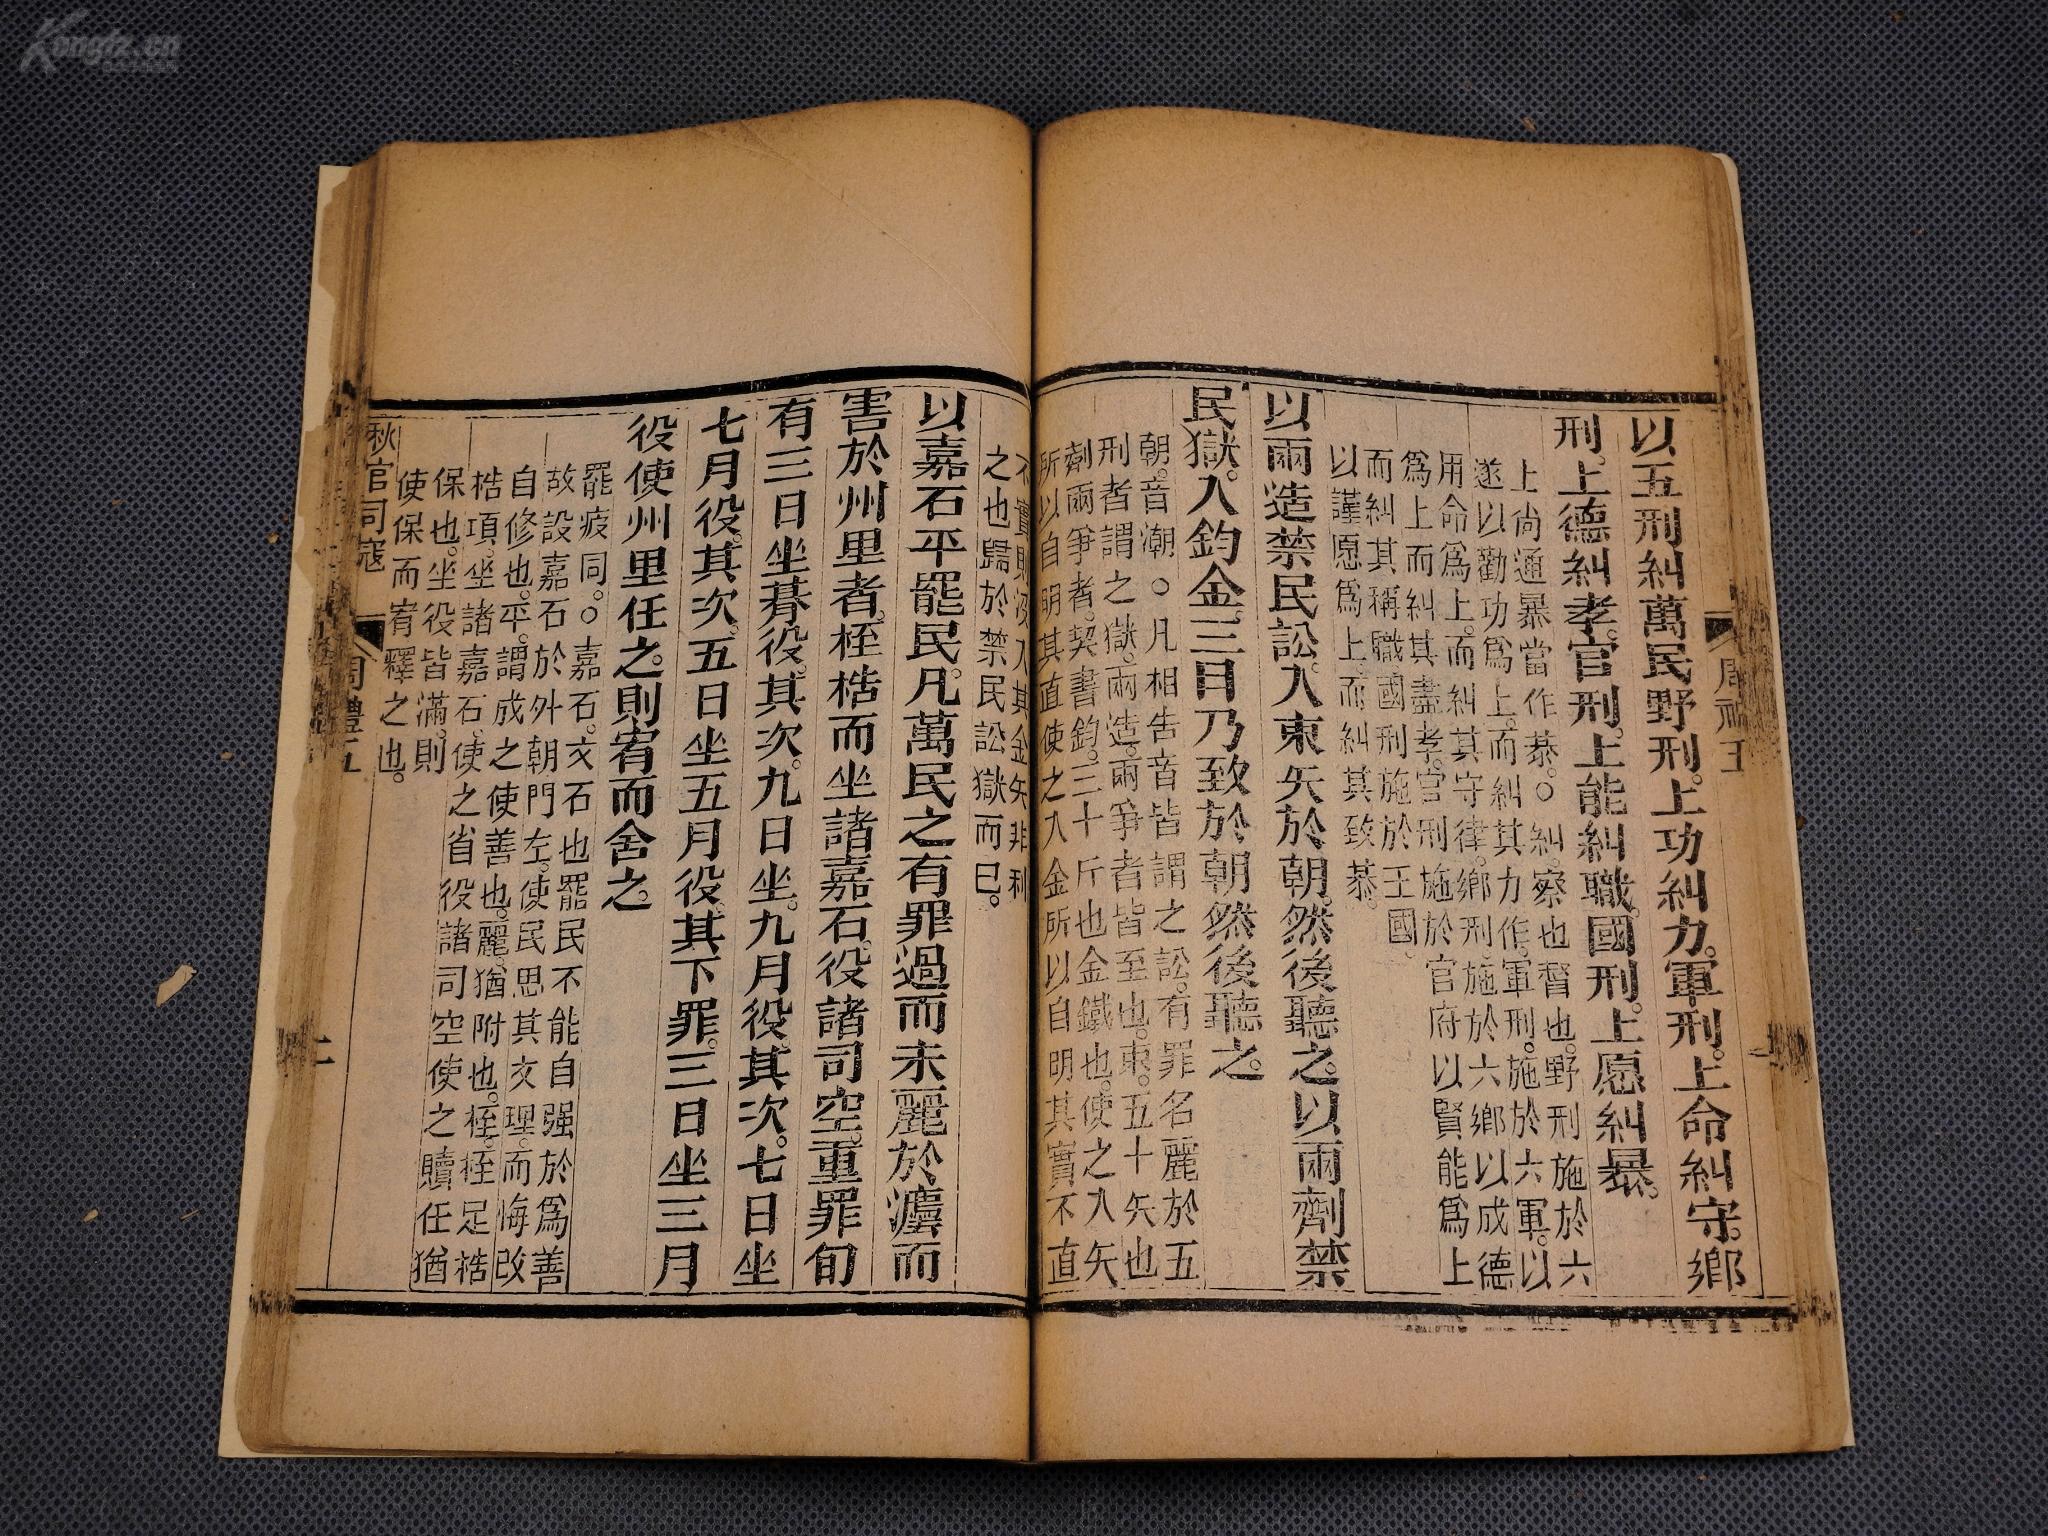 以五刑糾萬民野刑。上功糾力。軍刑。上命糾守。鄉
刑。上德糾孝。官刑。上能糾職。國刑。上愿糾暴。
上尚通暴當作恭。○糾。察也督也。野刑施於六
遂以勸功爲上。而糾其力作。軍刑。施於六軍。以
用命爲上。而糾其守律。鄉刑。施於六鄉以成德
爲上而糾其盡孝。官刑施於官府以賢能爲上
而糾其稱職國刑施於王國。
以謹愿爲上。而糾其致恭。
以兩造禁民訟。入束矢於朝。然後聽之。以兩劑禁
民獄。入鈞金。三日乃致於朝然後聽之。
朝。音潮。○凡相告音皆謂之訟。有罪名麗於五
刑者謂之獄。兩造。兩爭者皆至也。束。五十矢也
劑兩爭者。契書鈞。三十斤也金鐵也。使之入矢
所以自明其直使之入金所以自明其實不直
不實則沒入其金矢非利
之也歸於禁民訟獄而已。
以嘉石平罷民。凡萬民之有罪過而未麗於灋而
害於州里者。桎梏而坐諸嘉石。役諸司空。重罪旬
有三日坐朞役。其次。九日坐。九月役。其次。七日坐
七月役。其次。五日坐五月役。其下罪。三日坐三月
役使州里任之。則宥而舍之。
罷疲同。○嘉石。文石也罷民不能自强於爲善
故設嘉石於外朝門左。使民思其文理。而悔改
自修也。平。謂成之使善也。麗。猶附也。桎。桎足梏
梏項。坐諸嘉石。使之省役諸司空使之贖任猶
保也。坐役皆滿。則
使保而宥釋之也。
秋官司寇
周禮五
周禮五